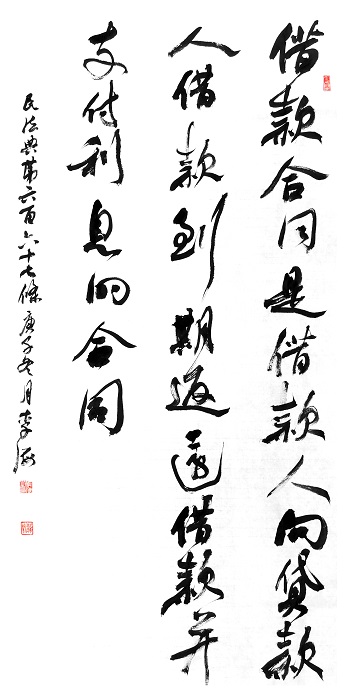 借款合同是借款人向贷款
人借款到期返還借款并
支付利息的合同
民法典第六百六十七條 庚子冬月 李海